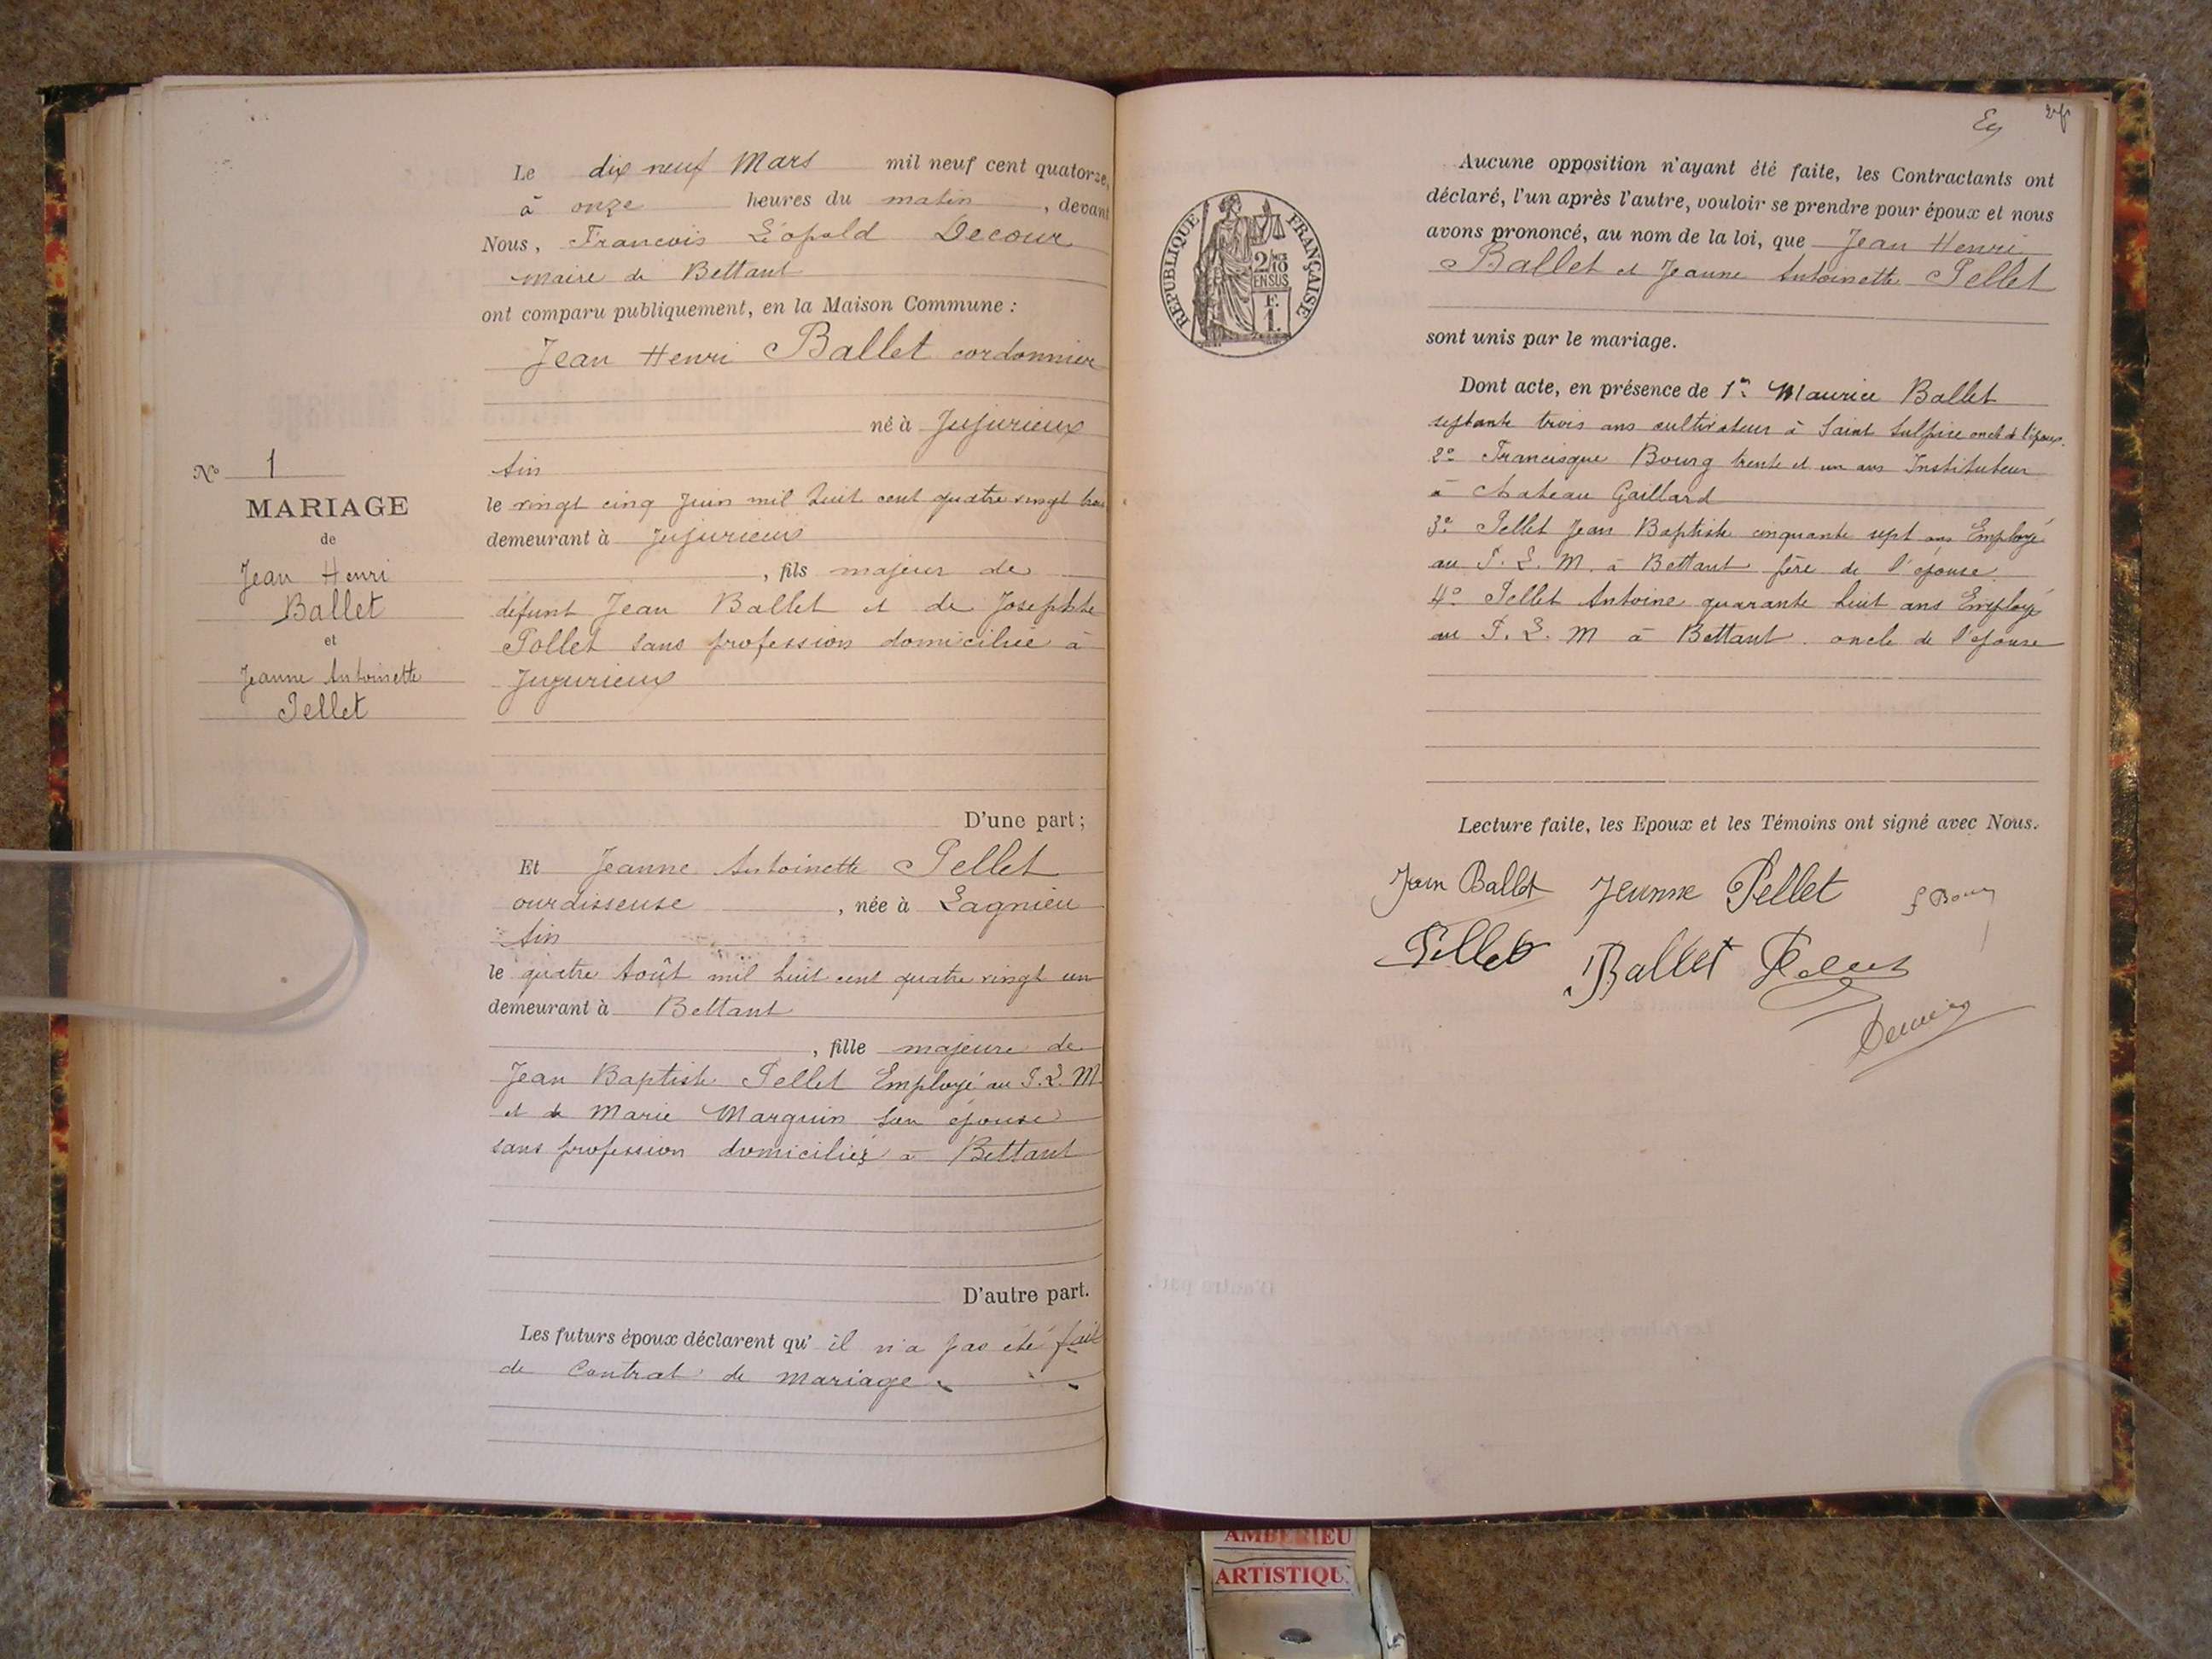 Le dix neuf Mars mil neuf cent quatorze,
à onze heures du matin, devant
Nous, Francois Léopold Decour
maire de Bettant
ont comparu publiquement, en la Maison Commune :
Jean Henri Ballet cordonnier
né à Jujurieux
Ain
le vingt cinq Juin mil huit cent quatre vingt
demeurant à Jujurieux
, fils majeur de
défunt Jean Ballet et de Josephte
Pollet sans profession domiciliée à
Jujurieux
N° 1
MARIAGE
de
Jean Henri
Ballet
et
Jeanne Antoinette
Pellet
D'une part ;
Et Jeanne Antoinette Pellet
ourdisseuse, née à Lagnieu
Ain
le quatre Août mil huit cent quatre vingt un
demeurant à Bettant
, fille majeure de
Jean Baptiste Pellet Employé au P.L.M
et de Marie Marguin son épouse
sans profession domiciliés à Bettant
D'autre part.
Les futurs époux déclarent qu' il n'a pas été fait
de Contrat de mariage
RÉPUBLIQUE FRANÇAISE
2/10
EN SUS
F.
1.
Aucune opposition n'ayant été faite, les Contractants ont
déclaré, l'un après l'autre, vouloir se prendre pour époux et nous
avons prononcé, au nom de la loi, que Jean Henri
Ballet et Jeanne Antoinette Pellet
sont unis par le mariage.
Dont acte, en présence de 1° Maurice Ballet
septante trois ans cultivateur à Saint Sulpice oncle de l'époux.
2° Francisque Bourg trente et un ans Instituteur
à Chateau Gaillard
3° Pellet Jean Baptiste cinquante sept ans Employé
au P. L. M. à Bettant père de l'épouse.
4° Pellet Antoine quarante huit ans Employé
au P. L. M à Bettant oncle de l'épouse
Lecture faite, les Epoux et les Témoins ont signé avec Nous.
Jean Ballet Jeanne Pellet F Bourg
Pellet Ballet Pellet
AMBERIEU
ARTISTIQU